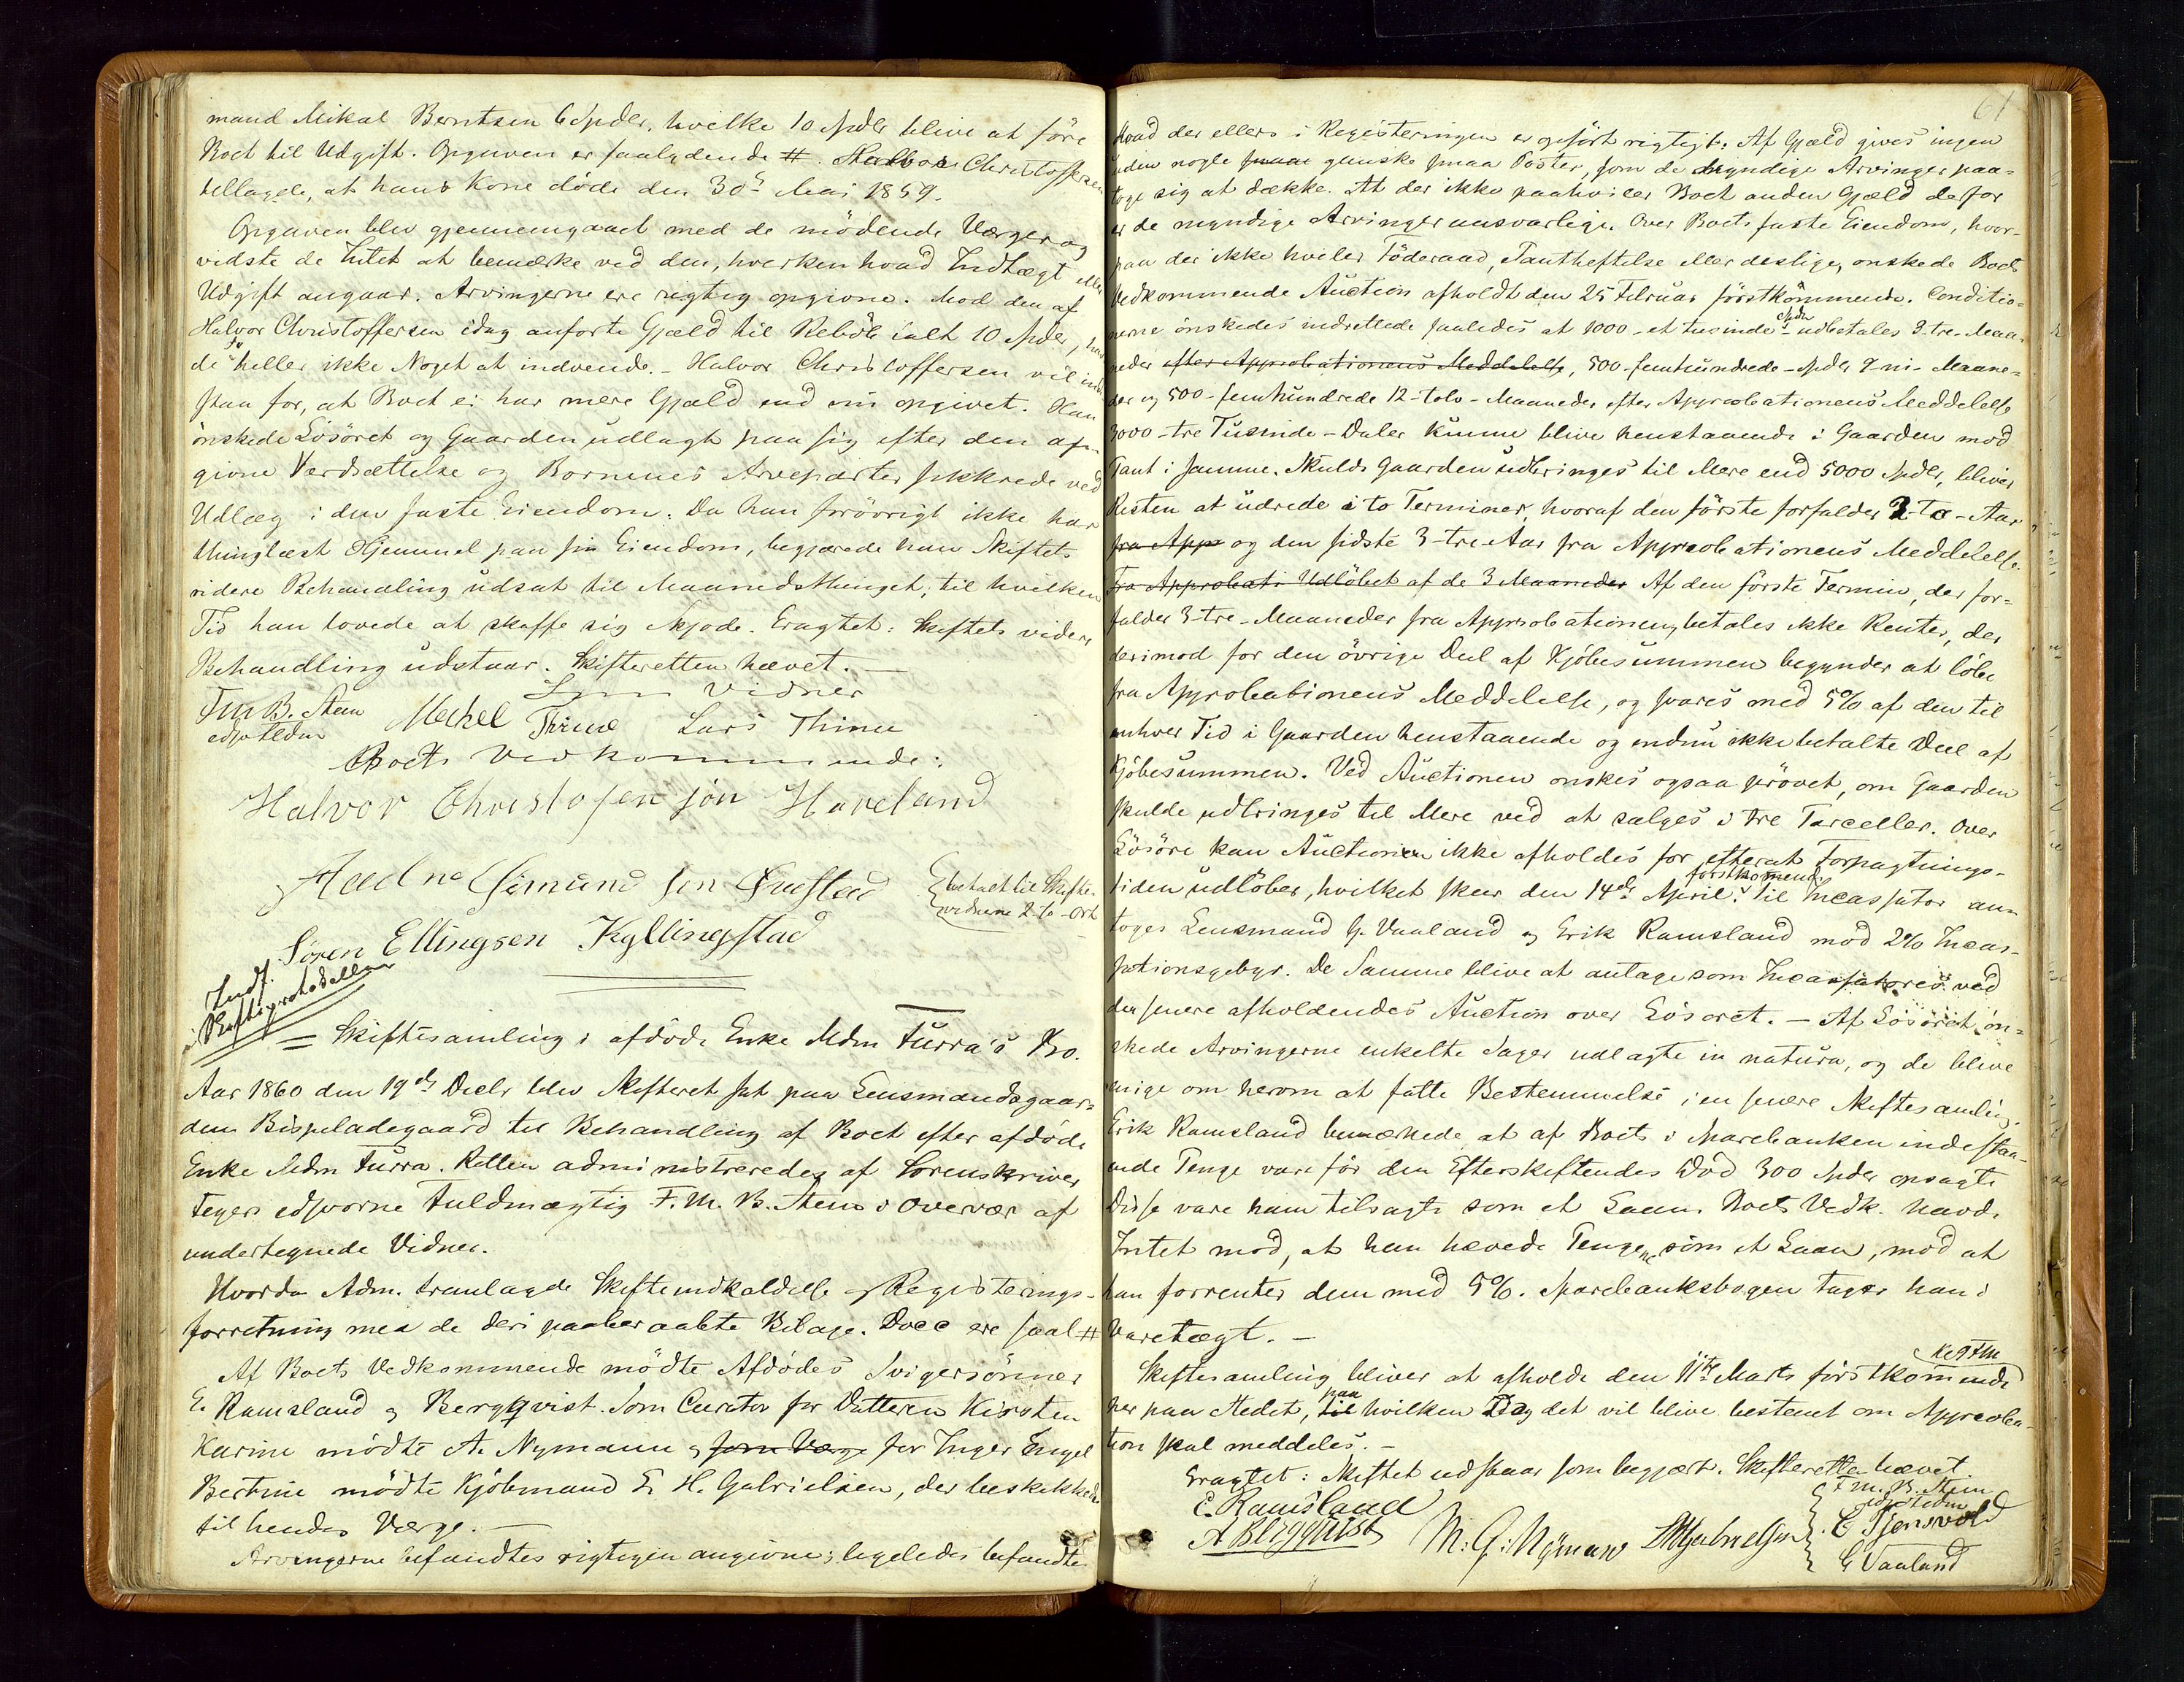 mand Mikal Berntsen 6 Spdlr. hvilke 10 Spdlr blive at före
Boet til Udgift. Opgaven er saalydende #. Halvor Christoffersen
tillagde, at hans Kone döde den 30te Mai 1859.
Opgaven blev gjennemgaaet med de mödende Værger og
vidste de Intet at bemærke ved den, hverken hvad Indtægt eller
Udgift angaar. Arvingerne ere rigtig opgivne. Mod den af
Halvor Christoffersen idag anforte Gjæld til Beböb ialt 10 Spdlr, havde
de heller ikke Noget at indvende. - Halvor Christoffersen vil inde
staa for, at Boet ei har mere Gjæld end nu opgivet. Han
önskede Lösöret og Gaarden udlagt paa sig efter den op-
givne Verdsættelse og Bornenes Arveparter sikkrede ved
Udlæg i den faste Eiendom. Da han forövrigt ikke har
thinglæst Hjemmel paa sin Eiendom, begjærede han Skiftets
videre Behandling udsat til Maanedsthinget, til hvilken
Tid han lovede at skaffe sig Skjøde. Eragtet: Skiftets videre
Behandling udstaar. Skifteretten hævet. —
Som Vidner
F M B. Stem Mechel Thime Lars Thime
edsv fldm
Boets Vedkommende:
Halvor Christofersen jön Haveland
Aadne Simund sen
betalt til Skifte-
vidnerne 2-to-Ort
Sören Ellingsen Kyllingstad
Indf.
i Skifteprotokollen
= Skiftesamling i afdöde Enke Mdm Furra's Bo.
Aar 1860 den 19de Decbr blev Skifteret sat paa Lensmandsgaar-
den Bispeladegaard til Behandling af Boet efter afdöde
Enke Mdm Furra. Retten administreredes af Sorenskriver
Feyers edsvorne Fuldmægtig F. M. B. Stem i Overvær af
undertegnede Vidner.
Hvorda Adm. fremlagde Skifteindkaldelse og Registerings-
forretning med de deri paaberaabte Bilage. Docc ere saal #
Af Boets Vedkommende mödte Afdödes Svigersönner
E. Ramsland og Bergqvist. Som Curator for Datteren Kirsten
Karine mödte A. Nymann og som Værge for Inger Engel
Bertine mödte Kjöbmand E. H. Gabrielsen, der beskikkedes
til hendes Værge. —
Arvingerne befandtes rigtigen angivne; ligeledes befandtes
61
Hvad der ellers i Registeringen er opfört rigtigt. Af Gjæld gives ingen
uden nogle smaa ganske smaa Poster, som de myndige Arvinger paa-
toge sig at dække. At der ikke paahviler Boet anden Gjæld derfor
er de myndige Arvinger ansvarlige. Over Boets faste Eiendom, hvor-
paa der ikke hviler Föderaad, Pantheftelse eller deslige, onskede Boets
Vedkommende Auction afholdt den 25 Februar förstkommende. Conditio-
nerne önskedes indrettede saaledes at 1000 - et tusinde Spdlr - udbetales 3-tre-Maa-
neder efter Approbationens Meddelelse, 500 - femhundrede - Spdlr 9-ni- Maane-
der og 500 - femhundrede 12-tolv - Maaneder efter Approbationens Meddelelse
3000 - tre Tusinde - Daler kunne blive henstaaende i Gaarden mod
Pant i samme. Skulde Gaarden udbringes til Mere end 5000 Spdlr, bliver
Resten at udrede i to Terminer, hvoraf den förste forfalder 2-to-Aar
fra App og den sidste 3-tre-Aar fra Approbationens Meddelelse.
Fra Approbati Udlöbet af de 3 Maaneder Af den förste Termin, der for-
falder 3-tre-Maaneder fra Approbationen, betales ikke Renter, der
derimod for den övrige Deel af Kjöbesummen begynder at löbe
fra Approbationens Meddelelse, og svares med 5% af den til
enhver Tid i Gaarden henstaaende og endnu ikke betalte Deel af
Kjöbesummen. Ved Auctionen onskes ogsaa prövet, om Gaarden
skulde udbringes til Mere ved at sælges i tre Parceller. Over
Lösöre kan Auctionen ikke afholdes for efterat Forpagtnings-
tiden udlöber, hvilket skeer den 14de April förstkommende. Til Incassator an-
toges Lensmand G. Vaaland og Erik Ramsland mod 2% Incas-
sationsgebyr. De Samme blive at antage som Incassatores ved
den senere afholdendes Auction over Lösöret. — Af Lösöret ön-
skede Arvingerne enkelte Sager udlagte in natura, og de bleve
enige om herom at fatte Bestemmelse i en senere Skiftesamling.
Erik Ramsland bemærkede at af Boets i Sparebanken indestaa-
ende Penge vare för den Efterskiftendes Död 300 Spdlr opsagte
Disse vare ham tilsagte som et Laan. Boets Vedk. havde
Intet mod, at han hævede Pengene som et Laan, mod at
han forrenter dem med 5%. Sparebanksbogen tager han i
Varetægt. —
Skiftesamling bliver at afholde den 11te Marts förstkommende
her paa Stedet, til paa hvilken Dag det vil blive bestemt om Approba-
tion skal meddeles. —
Eragtet: Skiftet udstaar som begjært. Skifteretten hævet.
F. M. B. Stem
edsv fldm
E. Ramsland
A Bergquist N. G. Nyman EHGabrielsen E Tjensvold
G Vaaland